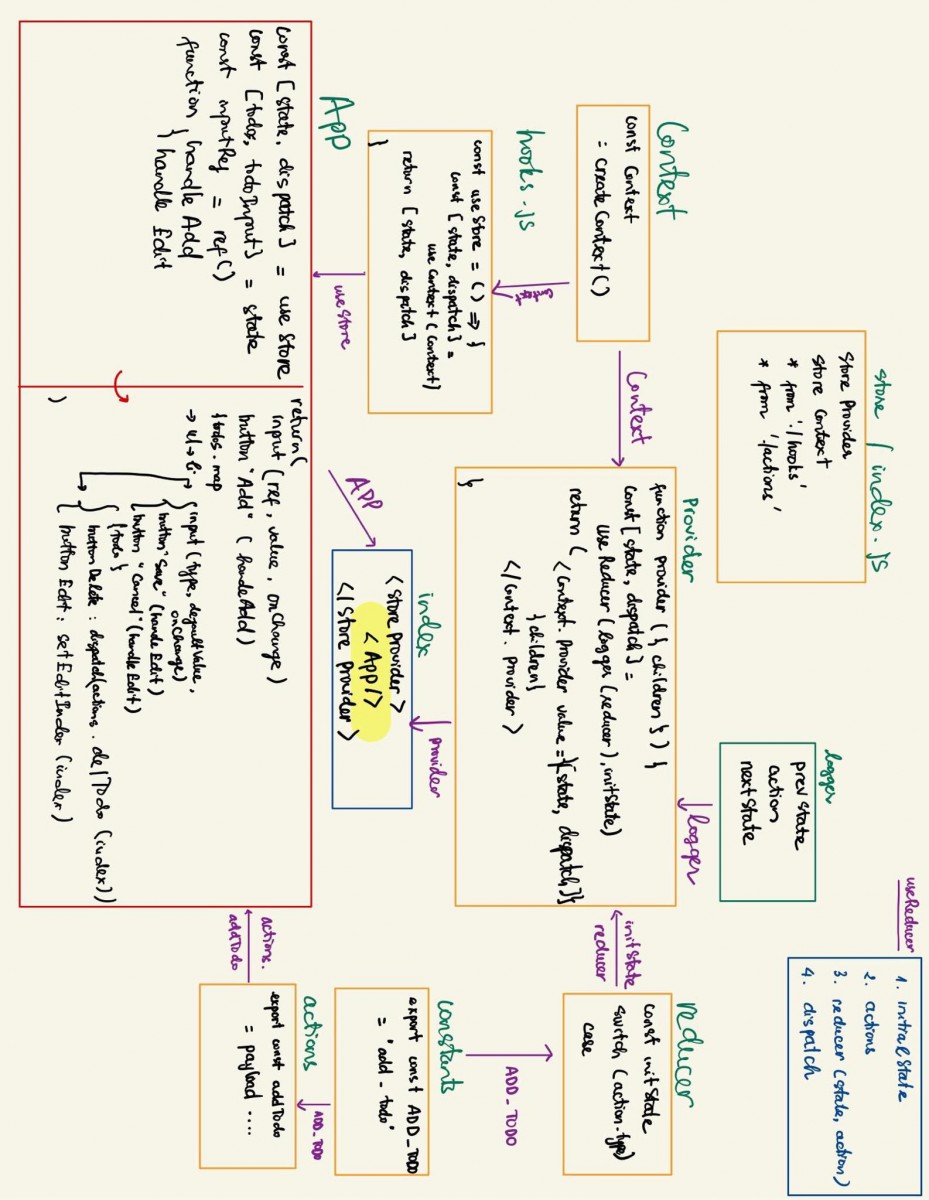 useReducer
1. initialState
2. actions
3. reducer (state, action)
4. dispatch
store / index.js
Store Provider
store Context
* from './hooks'
* from './actions'
logger
prev state
action
next state
logger
Context
const Context
= createContext()
Context
Provider
function provider ({ children }) {
const [state, dispatch] =
useReducer (logger (reducer), initState)
return (
<Context. Provider value ={[state, dispatch]}
{children}
</Context. Provider >
}
reducer
const initState
switch (action.type)
case
initState
reducer
ADD_TODO
Context
hooks.js
const useStore = () => {
const [state, dispatch] =
useContext (Context)
return [state, dispatch]
}
useStore
provider
index
<Store Provider >
<App/>
</ Store Provider >
APP
constants
export const ADD_TODO
= 'add_todo'
ADD_TODO
actions
export const addTodo
= payload ....
actions.
addTodo
App
const [state, dispatch] = useStore
const [todos, todoInput} = state
const inputRef = ref()
function { handle Add
handle Edit
return (
input (ref, value, onChange)
button "Add" (handeAdd)
{todos.map
→ ul → li → { input (type, defaultValue,
onChange)
button "Save" (hande Edit)
button "Cancel" (handle Edit)
{todo}
button Delete : dispatch(actions. delTodo (index))
button Edit : setEditIndex (index)
)